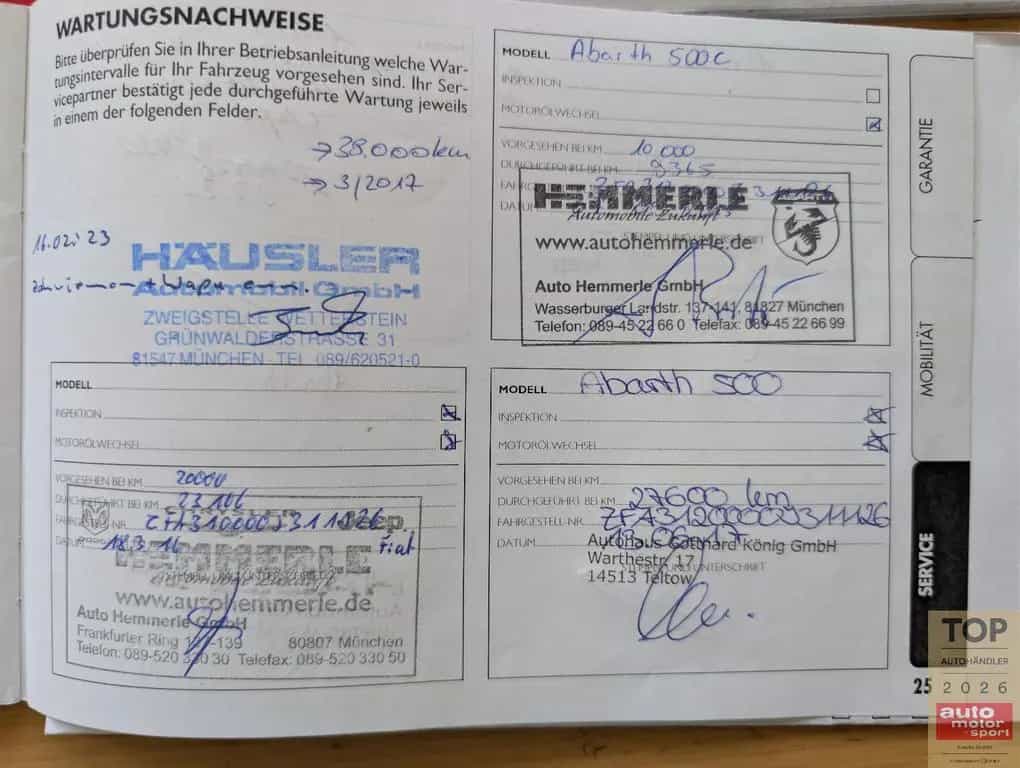 WARTUNGSNACHWEISE
Bitte überprüfen Sie in Ihrer Betriebsanleitung welche War-
tungsintervalle für Ihr Fahrzeug vorgesehen sind. Ihr Ser-
vicepartner bestätigt jede durchgeführte Wartung jeweils
in einem der folgenden Felder.
→ 38.000 km
→ 3/2017
23
HÄUSLER
Automobil GmbH
ZWEIGSTELLE WETTERSTEIN
GRÜNWALDERSTRASSE 31
81547 MÜNCHEN - TEL 089/620521-0
MODELL Abarth 500C
INSPEKTION
MOTORÖLWECHSEL
VORGESEHEN BEI KM 10 000
DURCHGEFÜHRT BEI KM 9365
HEMMERLE
Automobile Zukunft
ABARTH
STEMPEL UND UNTERSCHRIFT
www.autohemmerle.de
Auto Hemmerle GmbH
Wasserburger Landstr. 137-141, 81827 München
Telefon: 089-45 22 66 0 Telefax: 089-45 22 66 99
MODELL
INSPEKTION
MOTORÖLWECHSEL
VORGESEHEN BEI KM 20000
DURCHGEFÜHRT BEI KM 23106
FAHRGESTELL-NR.
DATUM 18.3.16
Jeep
Fiat
HEMMERLE
www.autohemmerle.de
Auto Hemmerle GmbH
Frankfurter Ring 137-139 80807 München
Telefon: 089-520 330 30 Telefax: 089-520 330 50
MODELL Abarth 500
INSPEKTION
MOTORÖLWECHSEL
VORGESEHEN BEI KM
DURCHGEFÜHRT BEI KM 27600 km
FAHRGESTELL-NR.
DATUM
Autohaus Gotthard König GmbH
Warthestr. 17
STEMPEL UND UNTERSCHRIFT
14513 Teltow
GARANTIE
MOBILITÄT
SERVICE
25
TOP
AUTOHÄNDLER
2026
auto
motor
sport